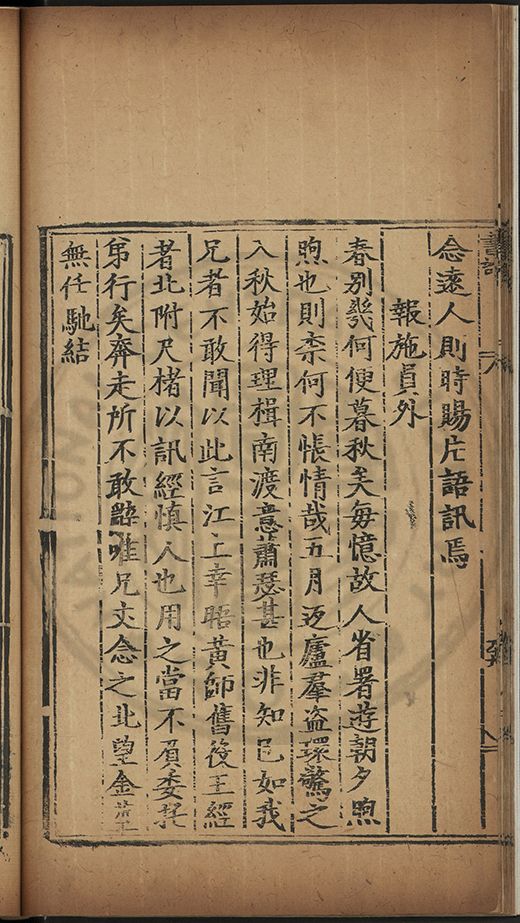 念遠人則時賜片語訊焉
報施員外
春別幾何便暮秋矣每憶故人省署遊朝夕煦
煦也則柰何不悵情哉五月返廬羣盗環驚之
入秋始得理楫南渡意蕭瑟甚也非知己如我
兄者不敢聞以此言江上幸晤黃師舊後王經
者北附尺楮以訊經慎人也用之當不負委
弟行矣奔走所不敢辭唯兄交念之北望金臺
無任馳結